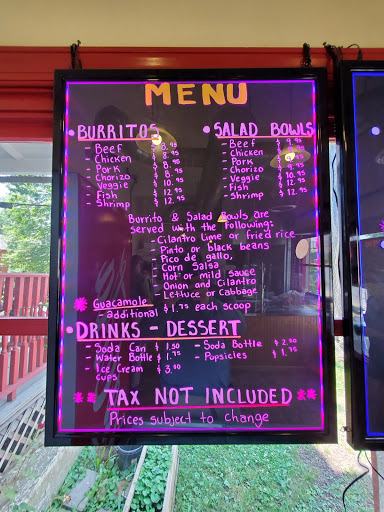 MENU
BURRITOS
- Beef $ 8.95
- Chicken $ 8.95
- Pork $ 8.95
- Chorizo $ 8.95
- Veggie $ 10.95
- Fish $ 12.95
- Shrimp $ 12.95
SALAD BOWLS
- Beef $ 9.95
- Chicken $ 8.95
- Pork $
- Chorizo $ 9.95
- Veggie $ 10.95
- Fish $ 12.95
- Shrimp $ 12.95
Burrito & Salad Bowls are
served with the Following:
- Cilantro Lime or fried rice
- Pinto or black beans
- Pico de gallo,
- Corn Salsa
- Hot or mild sauce
- Onion and Cilantro
- Lettuce or Cabbage
Guacamole
- additional $1.75 each scoop
DRINKS - DESSERT
- Soda Can $ 1.50
- Water Bottle $ 1.75
- Ice Cream $ 3.00
cups
- Soda Bottle $ 2.00
- Popsicles $ 1.75
TAX NOT INCLUDED
Prices subject to change